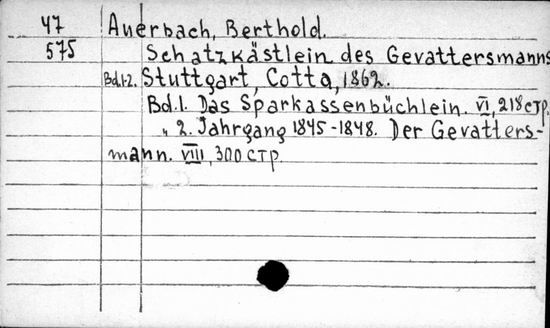 47 Auerbach, Berthold.
575 Schatzkästlein des Gevattersmanns
Bd.1-2. Stuttgart, Cotta, 1862.
Bd.1. Das Sparkassenbüchlein. VI, 218 стр.
„ 2. Jahrgang 1845-1848. Der Gevatters-
mann. VIII, 300 стр.